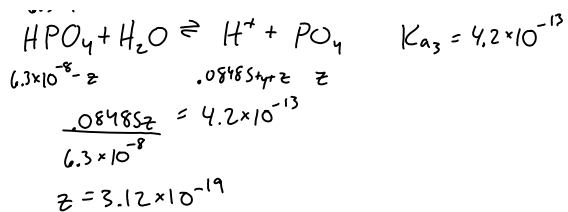 HPO₄ + H₂O ⇌ H⁺ + PO₄ Ka₃ = 4.2×10⁻¹³
6.3×10⁻⁸ - z .08485+y+z z
.08485z = 4.2×10⁻¹³
6.3×10⁻⁸
z = 3.12×10⁻¹⁹